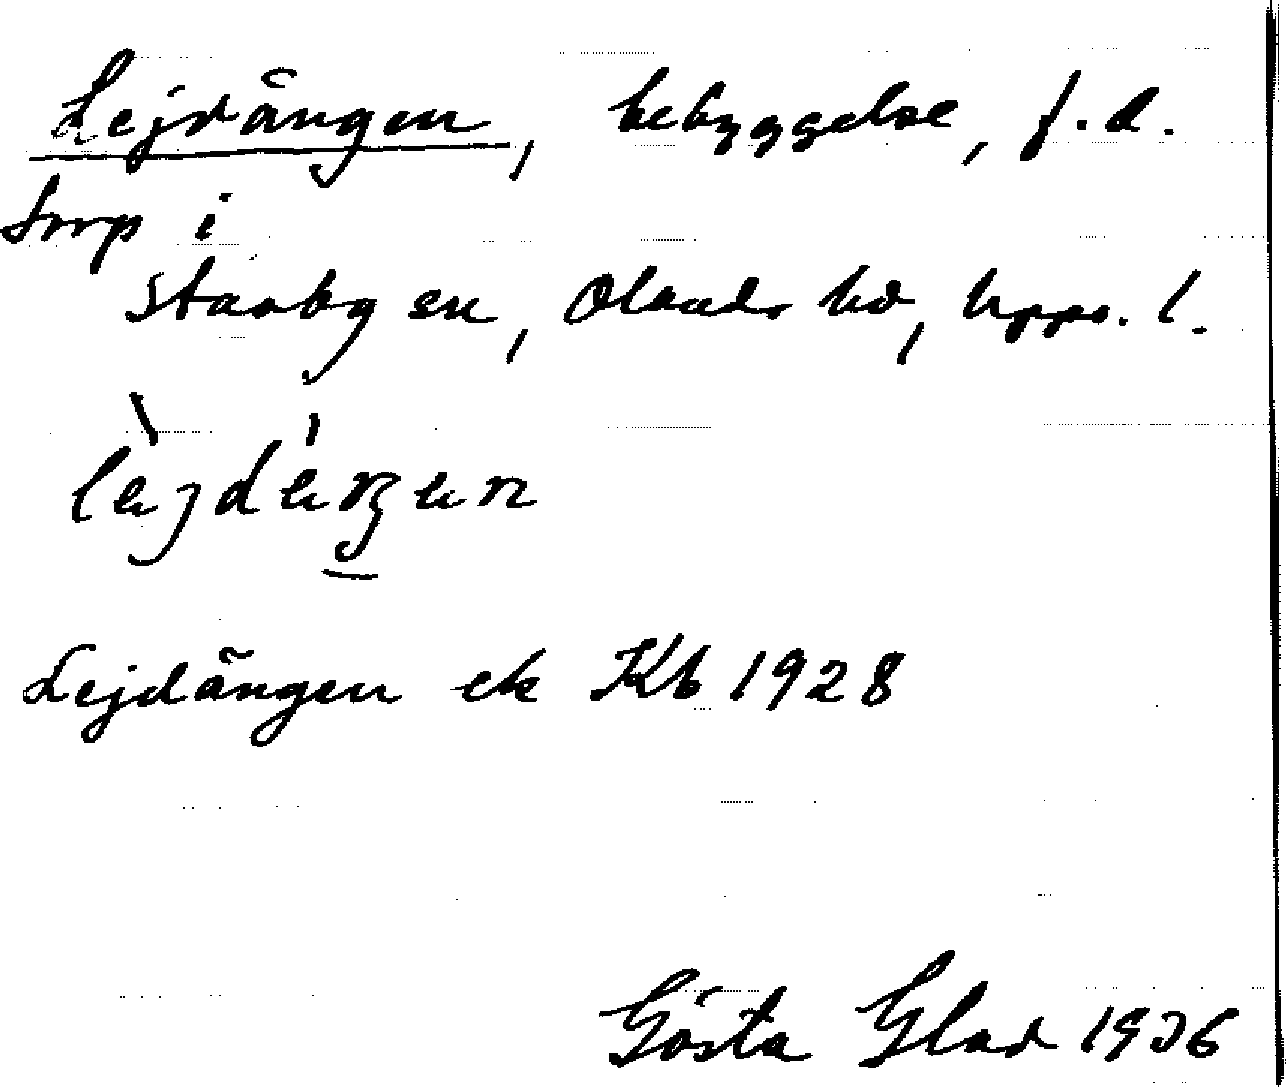 Lejdängen, bebyggelse, f.d.
torp i
Stavby sn, Olands hd, Upps. l.
Lejdängen ek Kb 1928
Gösta Glad 1936